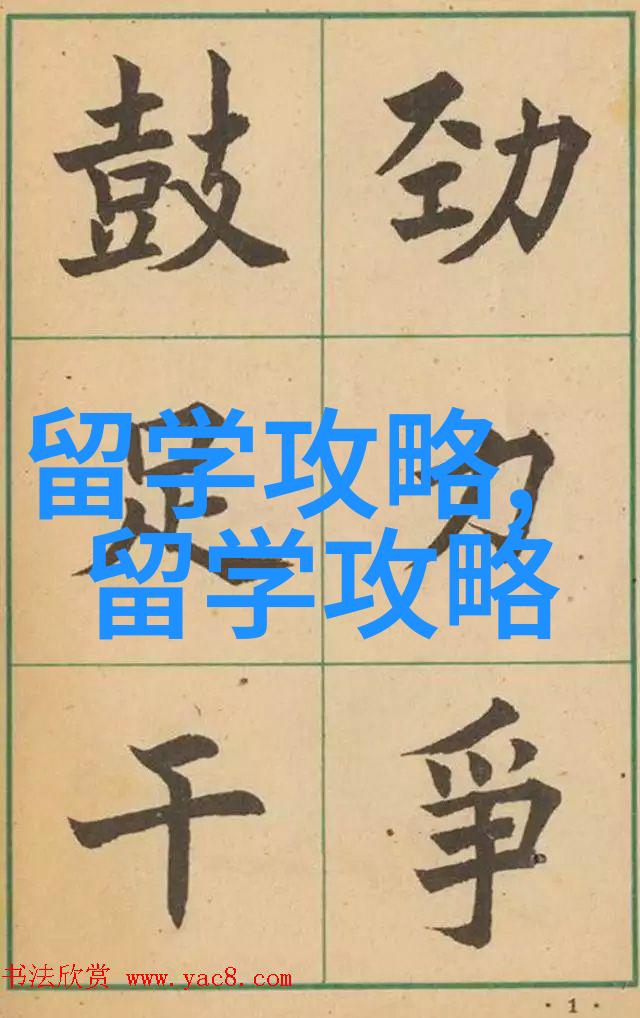 鼓足干
劲力爭
留学攻略,
留学攻略
书法欣赏 www.yac8.com
·1·